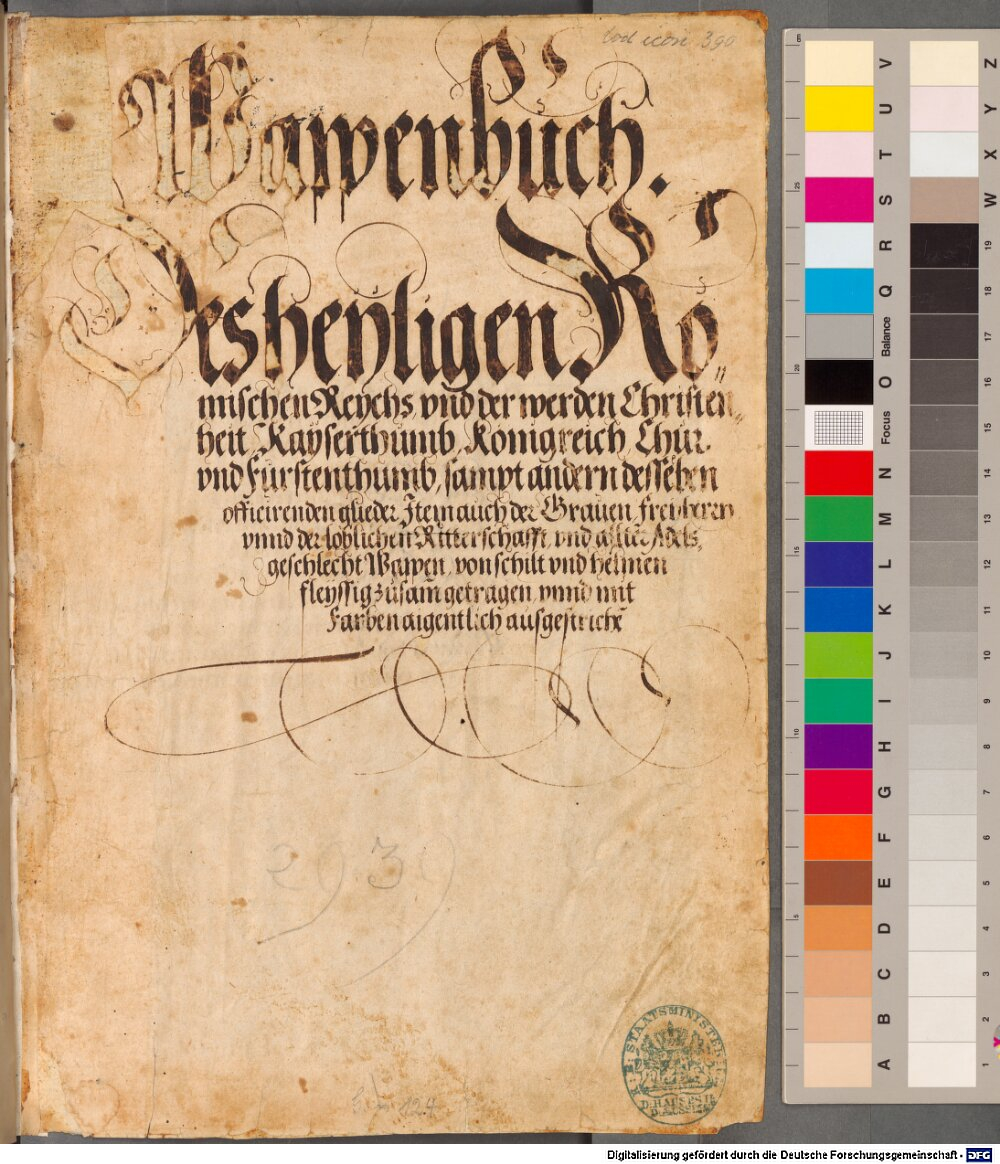 Cod icon 390
Wappenbuch.
Des heyligen Rö
mischen Reychs vnd der werden Christen„
heit Kayserthumb, Königreich Chur.
vnd Fürstenthumb, sampt andern desselben
officirenden glieder Jtem auch der Grauen, freyherrn
vnnd der löblichen Ritterschafft vnd adels
geschlecht Wapen, von schilt vnd helmen
fleyssig zusam getragen vnnd mit
Farben aigentlich ausgestriche͂
2939
K. B. STAATSMINISTERIUM
D. HAUSES U.
D. AEUSSERN
V U T S R Q Balance O Focus N M L K J I H G F E D C B A
Z Y X W 19 18 17 16 15 14 13 12 11 10 9 8 7 6 5 4 3 2 1
cm 25 20 15 10 5
Digitalisierung gefördert durch die Deutsche Forschungsgemeinschaft - DFG